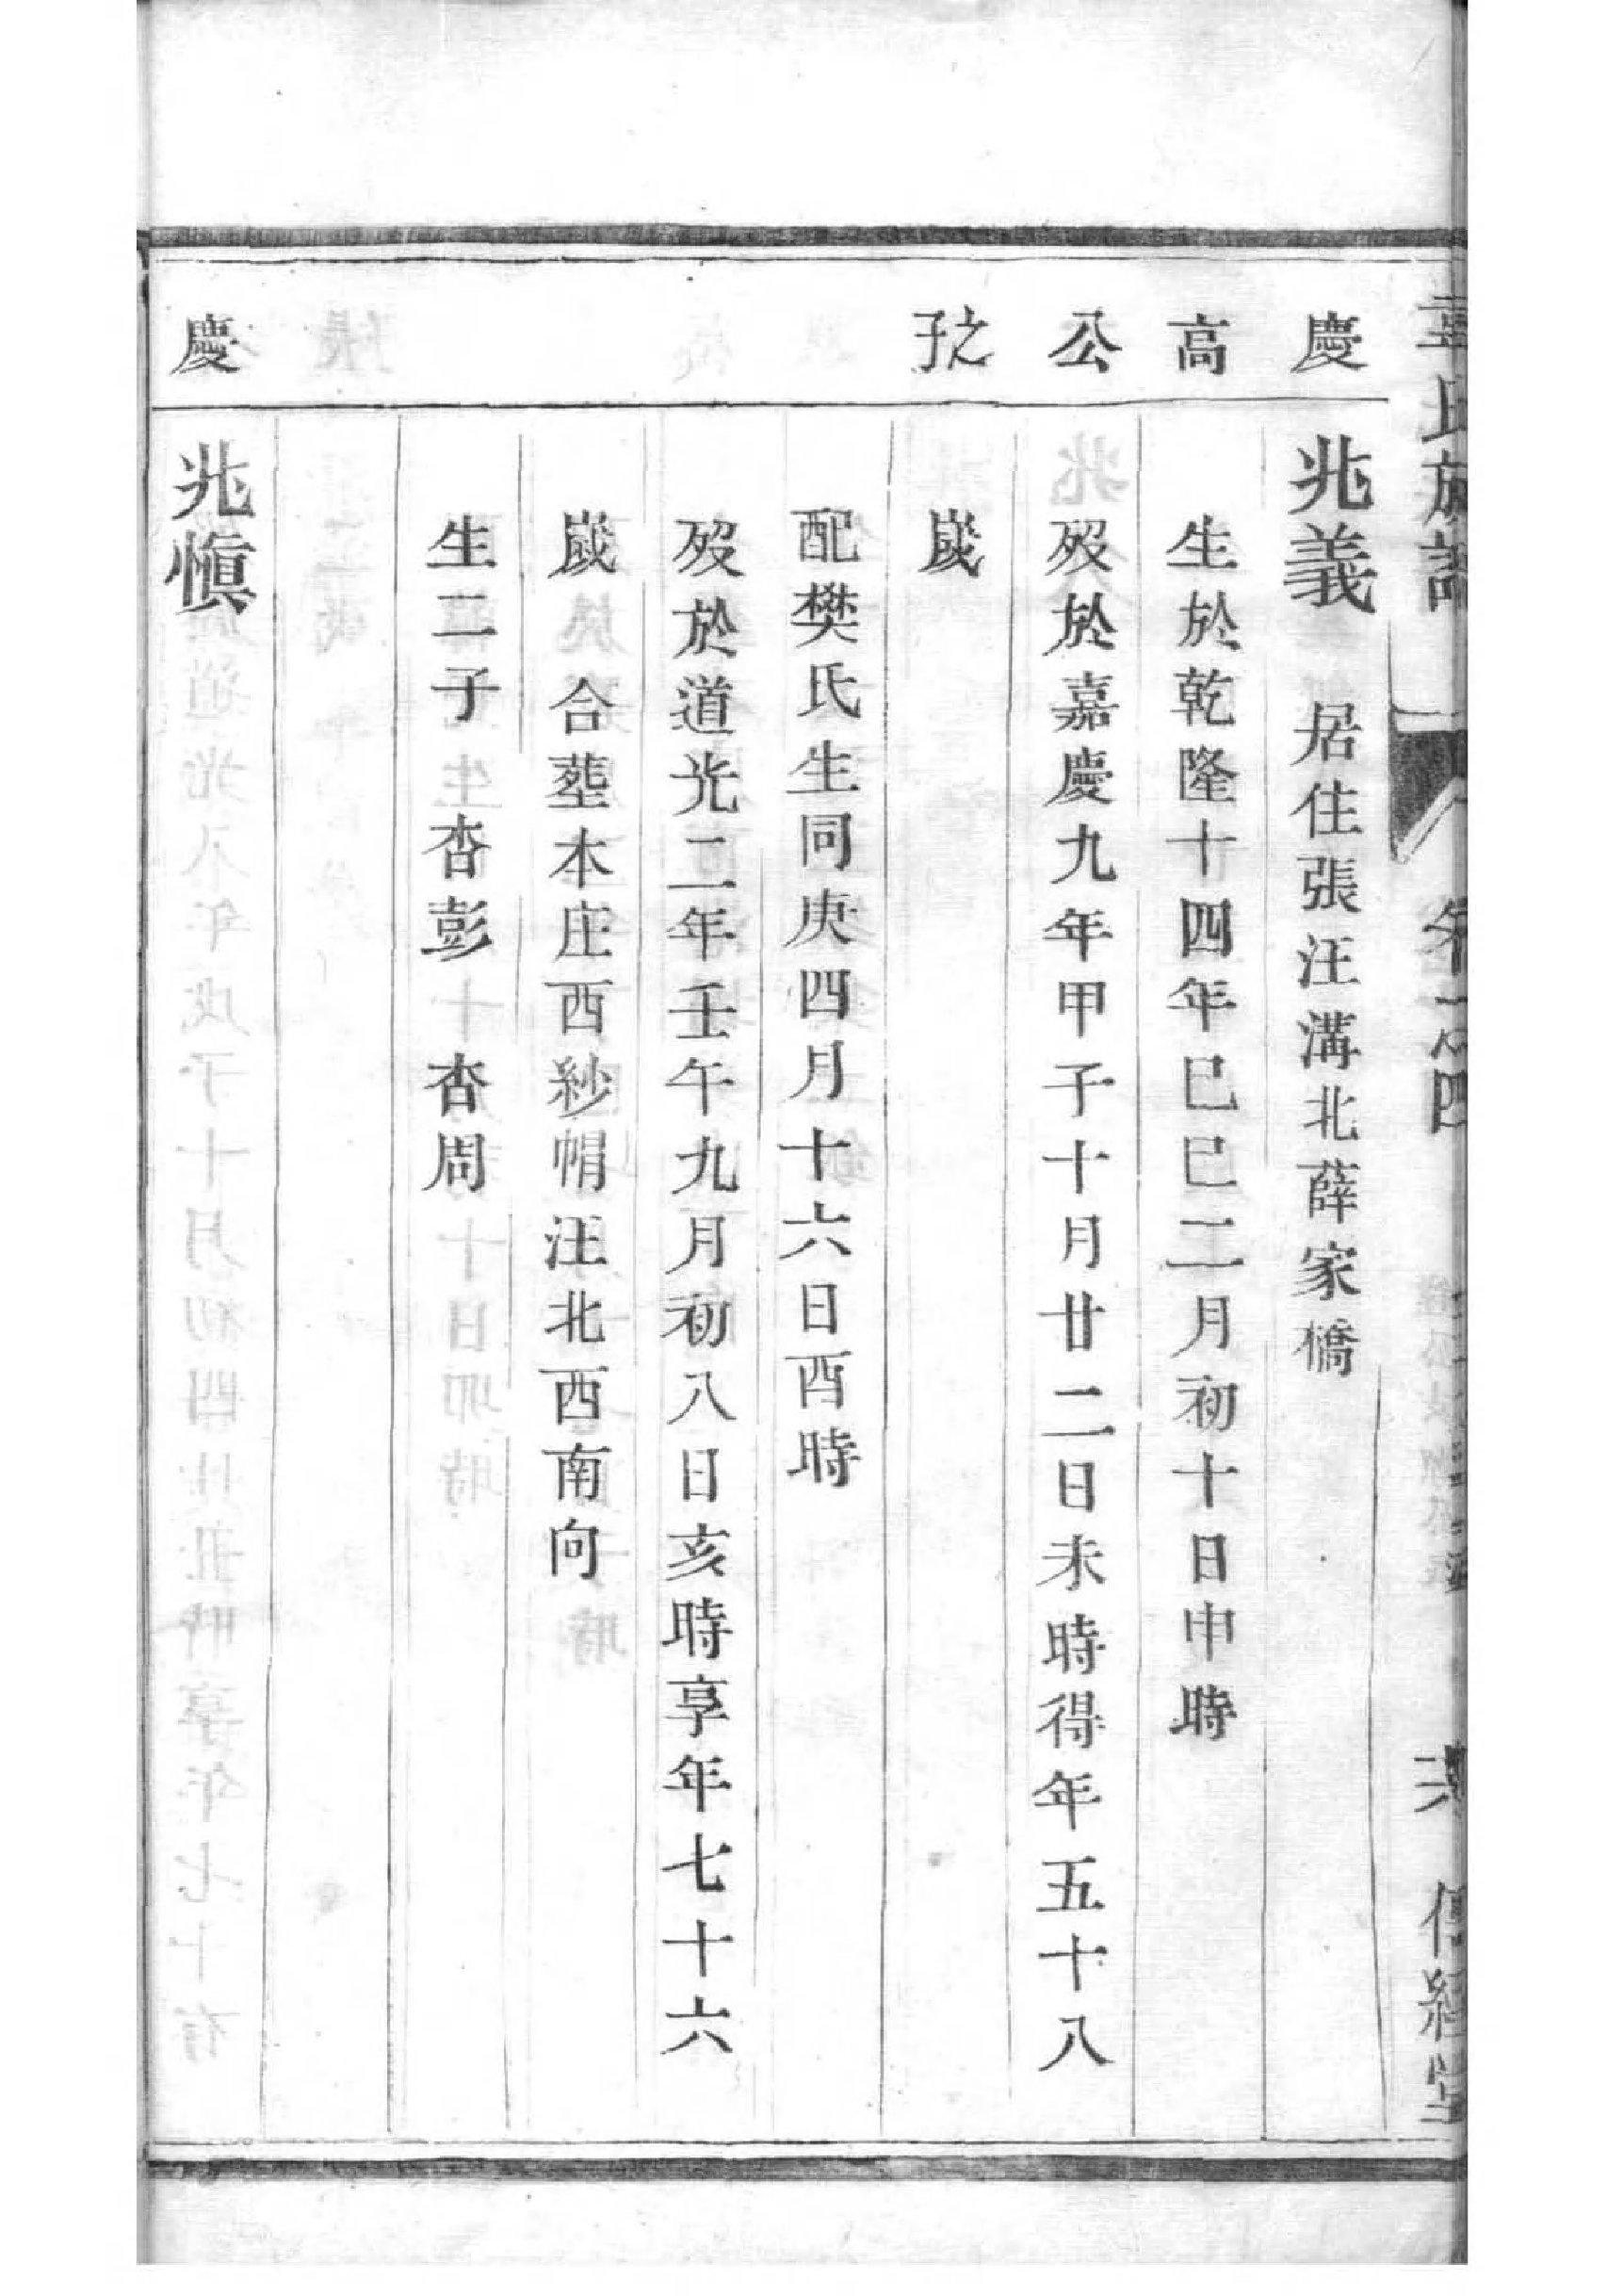 氏族譜 卷之四 六 傳經堂
慶
高
公
之子
慶
兆義 居住張汪溝北薛家橋
生於乾隆十四年己巳二月初十日申時
歿於嘉慶九年甲子十月廿二日未時得年五十八
歲
配樊氏生同庚四月十六日酉時
歿於道光二年壬午九月初八日亥時享年七十六
歲 合塟本庄西紗帽汪北西南向
生二子 杏彭 杏周
兆慎